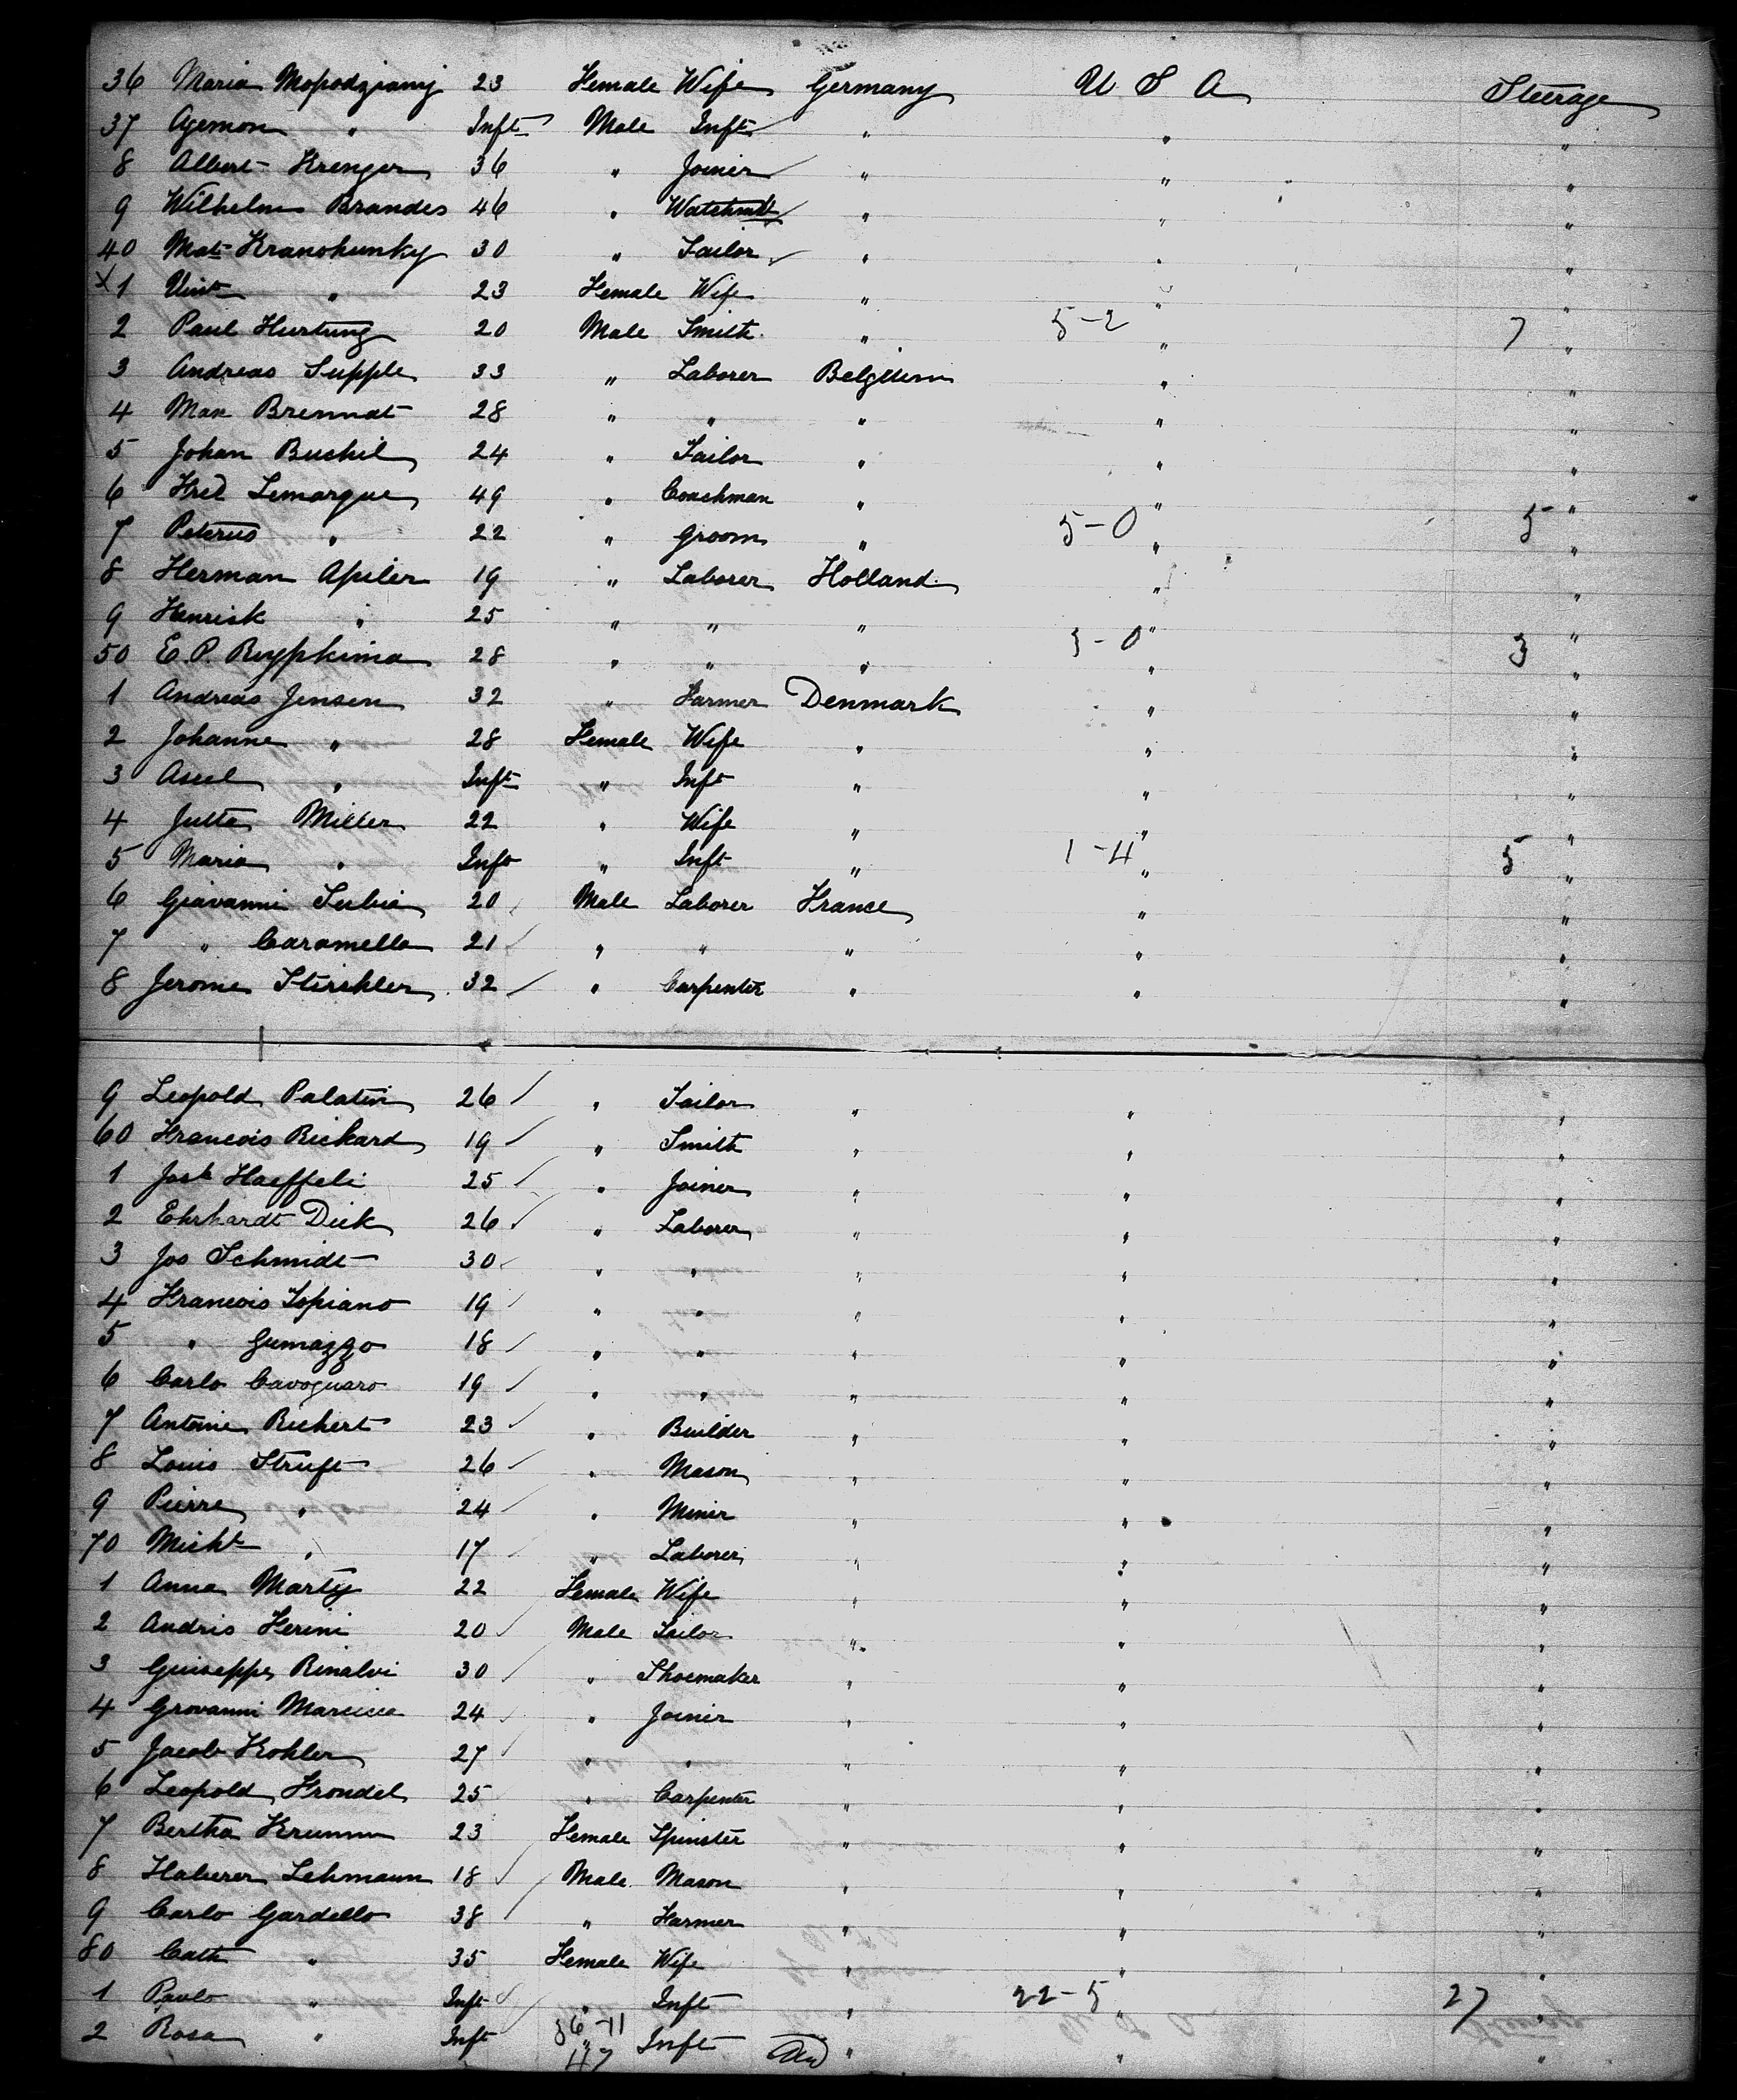 36 Maria Mopodzianij 23 Female Wife Germany U S A Steerage
37 Agemon " Inft Male Inft " " "
8 Albert Krenger 36 " Joiner " " "
9 Wilhelm Brandes 46 " " " "
40 Kranohunky 30 " Tailor " " "
1 " 23 Female Wife " " "
2 Paul Hurtung 20 Male Smith " 5-2 " 7 "
3 Andreas Supple 33 " Laborer Belgium " "
4 Max Brenndt 28 " " " " "
5 Johan Buchil 24 " Tailor " " "
6 Fred Lemarque 49 " Coachman " " "
7 Petrus " 22 " Groom " 5-0 " 5 "
8 Herman Apiler 19 " Laborer Holland " "
9 Henrik " 25 " " " " "
50 E. P. 28 " " " 3-0 " 3 "
1 Andreas Jensen 32 " Farmer Denmark " "
2 Johanne " 28 Female Wife " " "
3 Axel " Inft " Inft " " "
4 Jutta Miller 22 " Wife " " "
5 Maria " Inft " Inft " 1-4 " 5 "
6 Giavanni Serbia 20 Male Laborer France " "
7 " Caramella 21 " " " " "
8 Jerome Stirchler 32 " Carpenter " " "
9 Leopold Palatin 26 " Tailor " " "
60 Francois Rickard 19 " Smith " " "
1 Josh Haeffeli 25 " Joiner " " "
2 Ehrhardt Dick 26 " Laborer " " "
3 Jos Schmidt 30 " " " " "
4 Francois Topiano 19 " " " " "
5 " Gumazzo 18 " " " " "
6 Carlo Cavoguaro 19 " " " " "
7 Antoine Richert 23 " Builder " " "
8 Louis Strupt 26 " Mason " " "
9 Pierre " 24 " Miner " " "
70 Micht " 17 " Laborer " " "
1 Anna Marty 22 Female Wife " " "
2 Andris Ferini 20 Male Tailor " " "
3 Guiseppe Rinalvi 30 " Shoemaker " " "
4 Grovanni 24 " Joiner " " "
5 Jacob Kohler 27 " " " " "
6 Leopold Frondel 25 " Carpenter " " "
7 Bertha Krumm 23 Female Spinster " " "
8 Haberer Lehmann 18 Male Mason " " "
9 Carlo Gardello 38 " Farmer " " "
80 Cath " 35 Female Wife " " "
1 Paulo " Inft " Inft " 22-5 " 27 "
2 Rosa " Inft 36-11 " Inft " " "
47